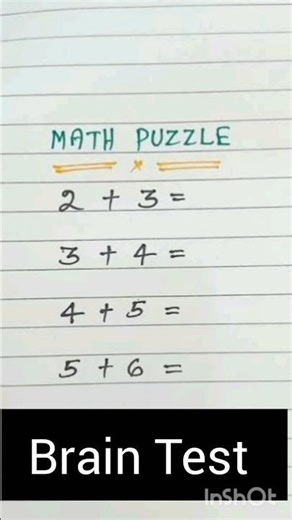 MATH PUZZLE
x
2 + 3 =
3 + 4 =
4 + 5 =
5 + 6 =
Brain Test
InShOt